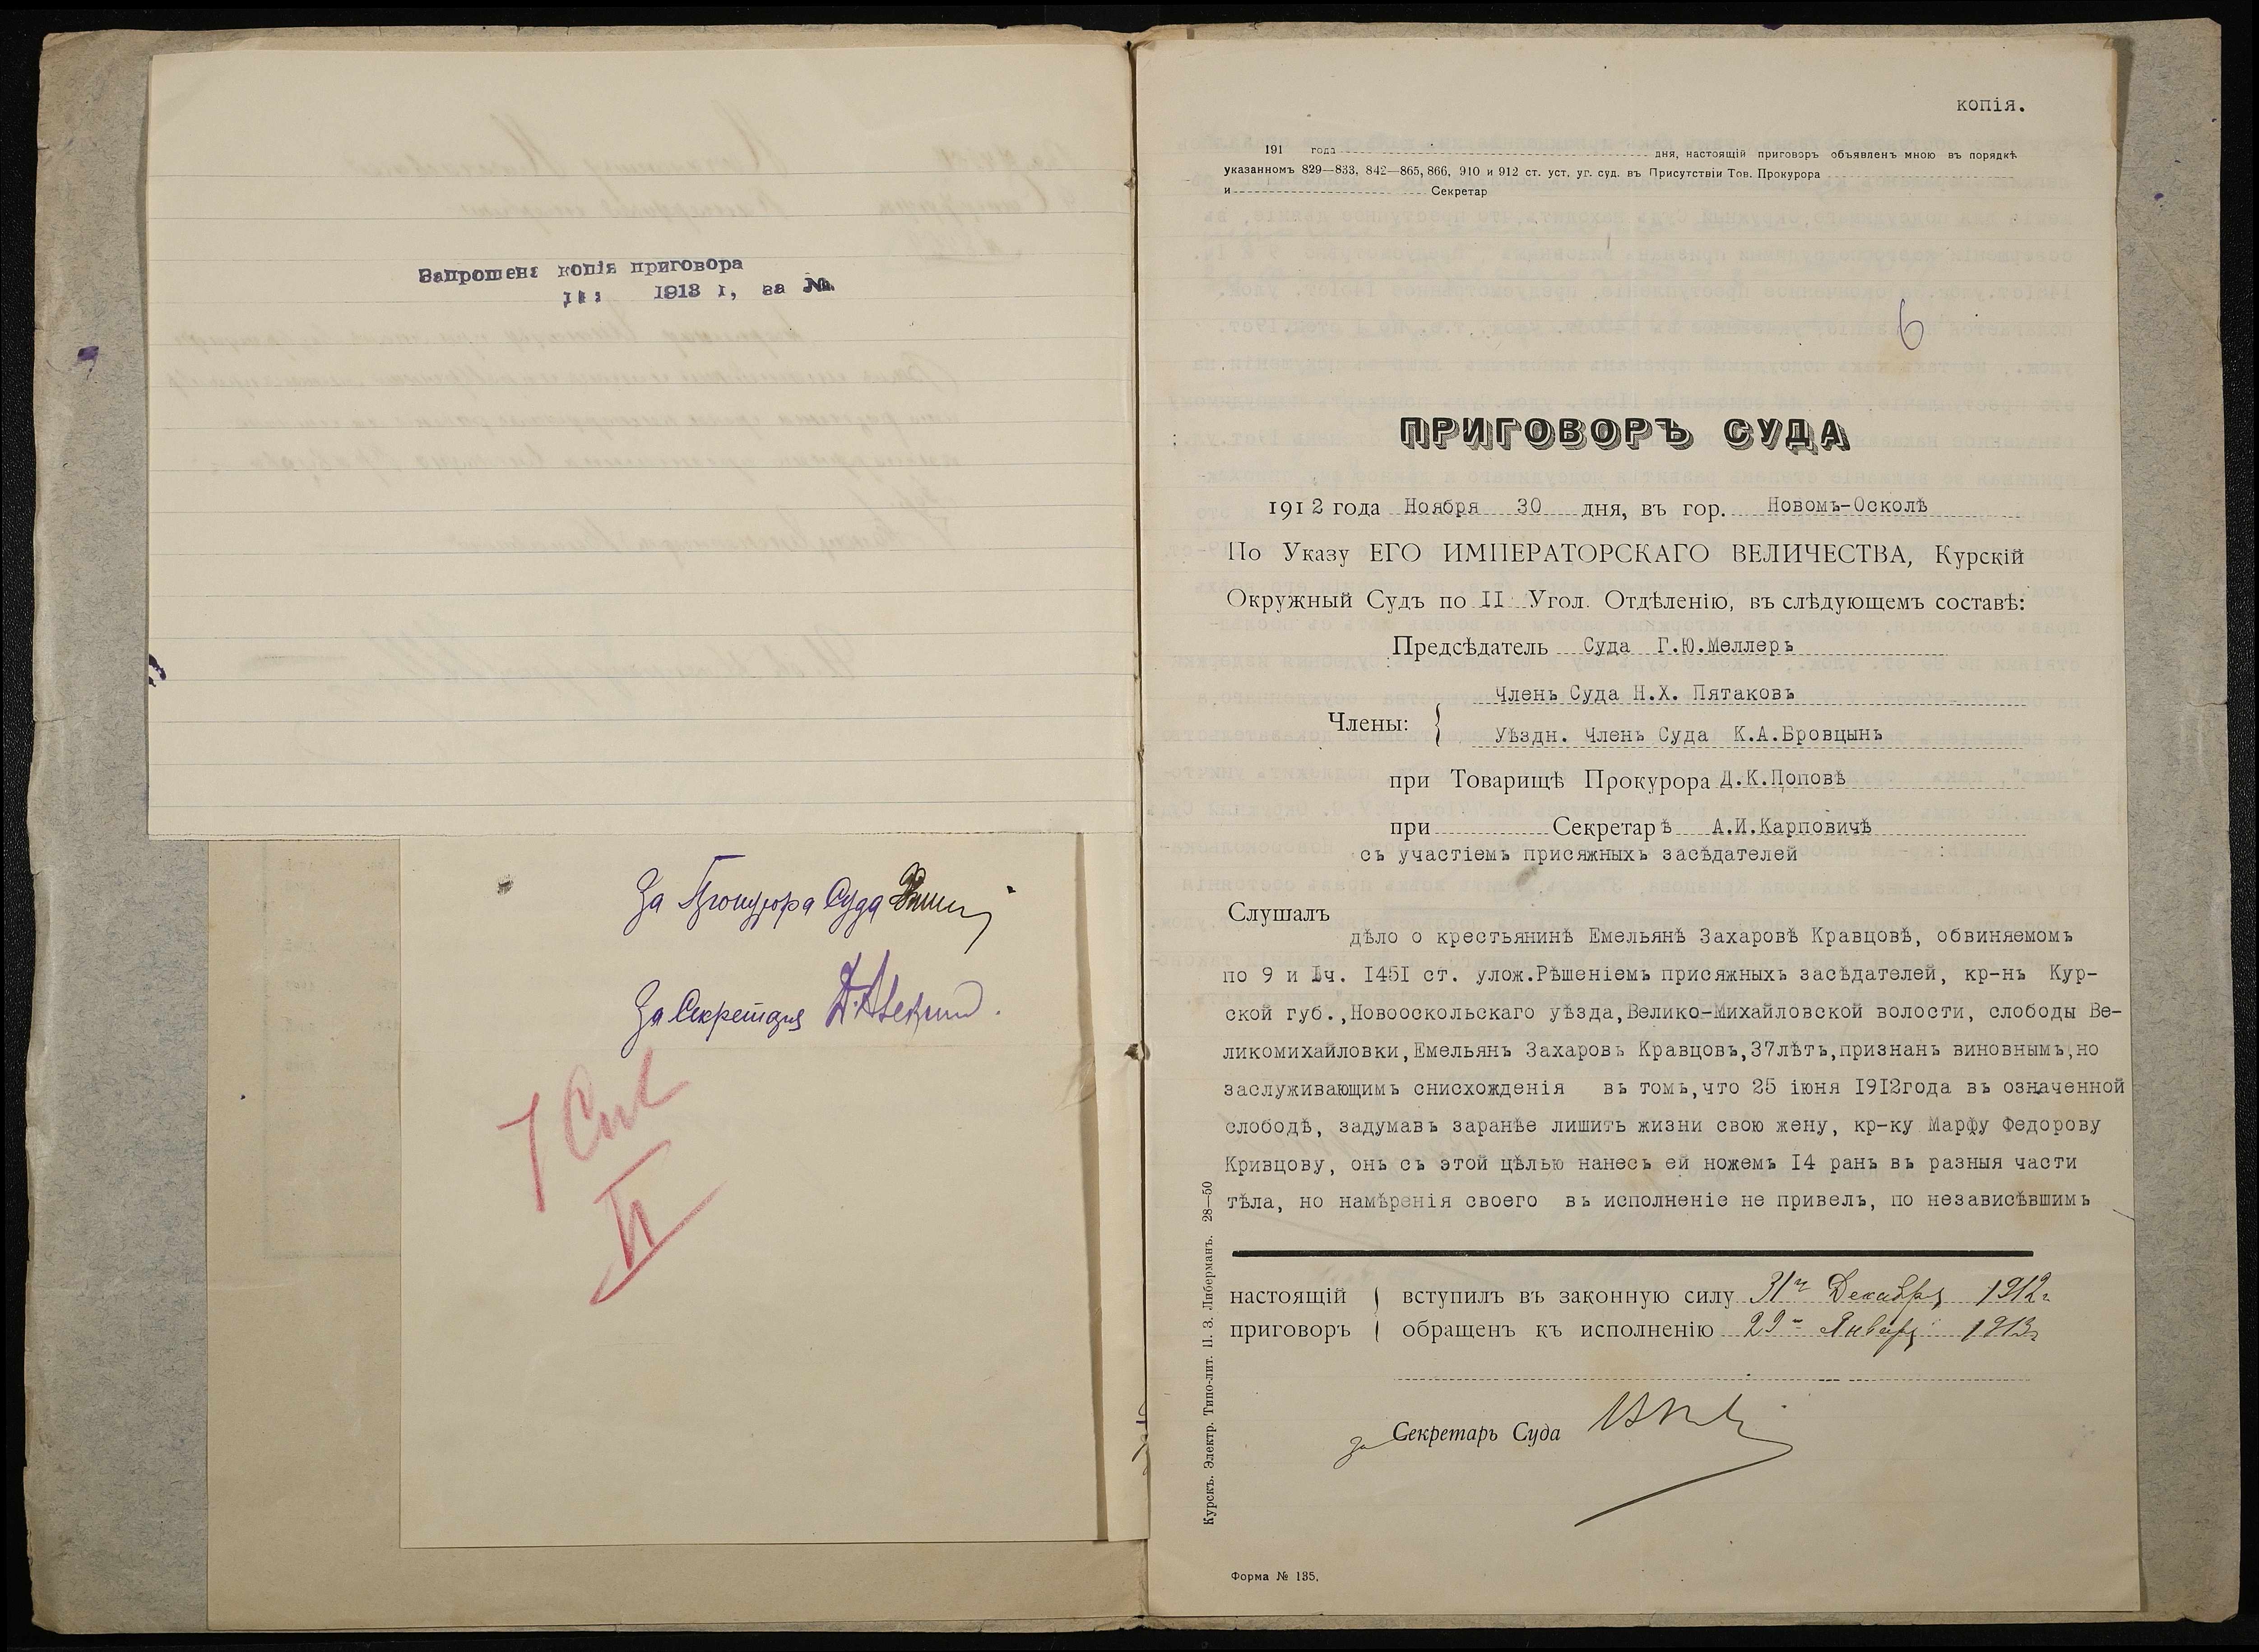 Запрошена копія приговора
1913 г, за №
За Прокурора Суда
За Секретаря
II
копія.
191 года дня, настоящій приговоръ объявленъ мною въ порядкѣ
указанномъ 829—833, 842—865, 866, 910 и 912 ст. уст. уг. суд. въ Присутствіи Тов. Прокурора
и Секретар
6
ПРИГОВОРЪ СУДА
1912 года Ноября 30 дня, въ гор. Новомъ-Осколѣ
По Указу ЕГО ИМПЕРАТОРСКАГО ВЕЛИЧЕСТВА, Курскій
Окружный Судъ по II Угол. Отдѣленію, въ слѣдующемъ составѣ:
Предсѣдатель Суда Г.Ю.Меллеръ
Члены: { Членъ Суда Н.Х. Пятаковъ
Уѣздн. Членъ Суда К.А.Бровцынъ
при Товарищѣ Прокурора Д.К.Поповѣ
при Секретарѣ А.И.Карповичѣ
съ участіемъ присяжныхъ засѣдателей
Слушалъ
дѣло о крестьянинѣ Емельянѣ Захаровѣ Кравцовѣ, обвиняемомъ
по 9 и Iч. I45I ст. улож.Рѣшеніемъ присяжныхъ засѣдателей, кр-нъ Кур-
ской губ.,Новооскольскаго уѣзда,Велико-Михайловской волости, слободы Ве-
ликомихайловки,Емельянъ Захаровъ Кравцовъ,37лѣтъ,признанъ виновнымъ,но
заслуживающимъ снисхожденія въ томъ,что 25 іюня I9I2года въ означенной
слободѣ, задумавъ заранѣе лишить жизни свою жену, кр-ку Марфу Федорову
Кривцову, онъ съ этой цѣлью нанесъ ей ножемъ I4 ранъ въ разныя части
тѣла, но намѣренія своего въ исполненіе не привелъ, по независѣвшимъ
настоящій { вступилъ въ законную силу 31го Декабря 1912г
приговоръ { обращенъ къ исполненію 29го Января 1913г
за Секретарь Суда
Форма № 135.
Курскъ. Электр. Типо-лит. П. З. Либерманъ. 28—50